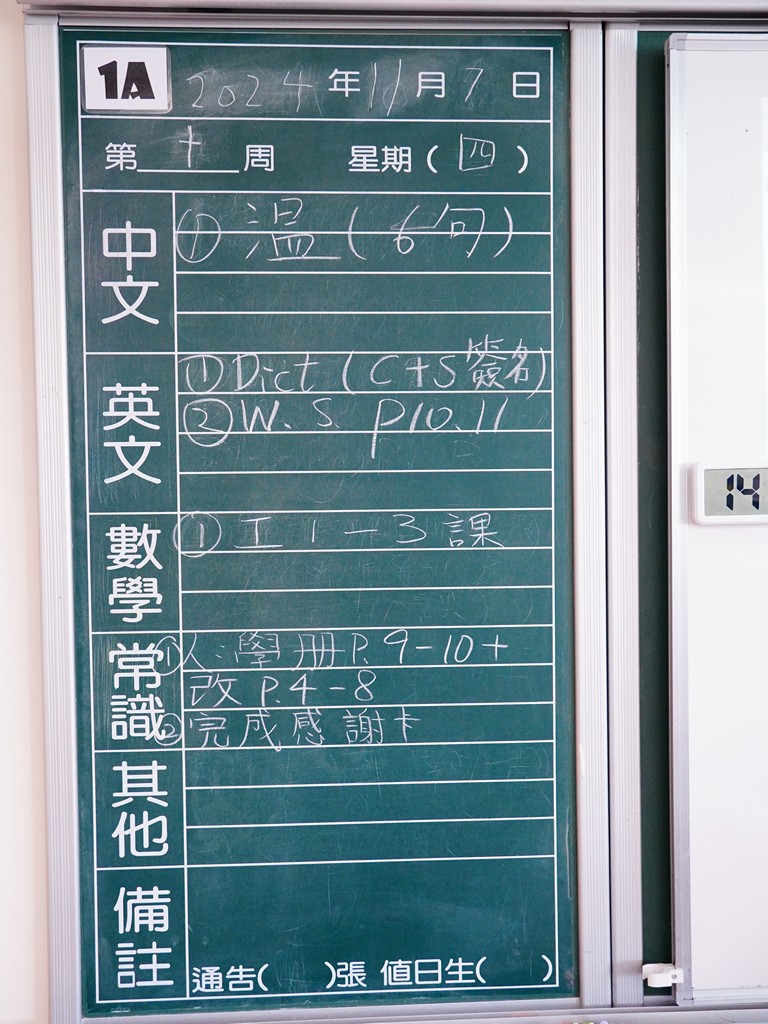 1A 2024年11月7日
第十周 星期(四)
中文
① 溫(6句)
英文
① Dict (C+S 簽名)
② W.S. P10.11
數學
① 工1-3課
常識
① 人:學冊P.9-10+
改P.4-8
② 完成感謝卡
其他
備註
通告( )張 值日生( )
14